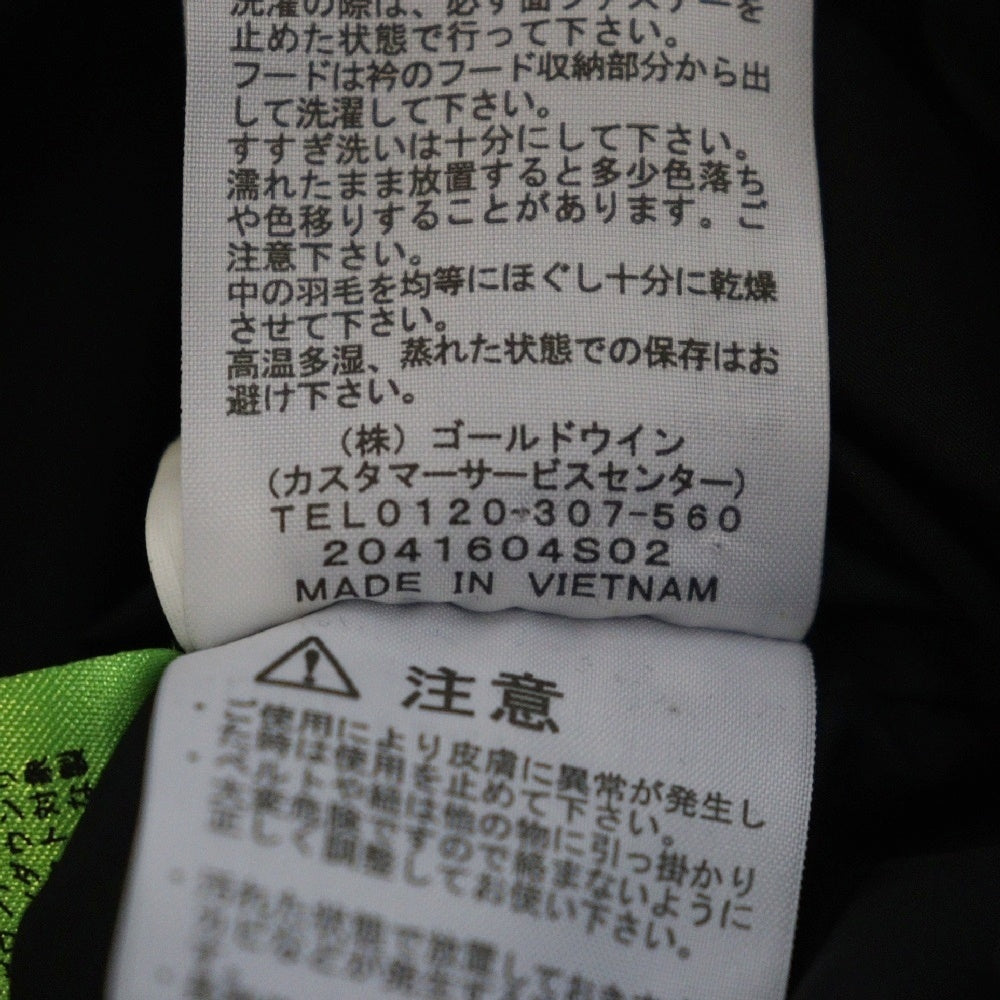 洗濯の際は、必ず面ファスナーを
止めた状態で行って下さい。
フードは衿のフード収納部分から出
して洗濯して下さい。
すすぎ洗いは十分にして下さい。
濡れたまま放置すると多少色落ち
や色移りすることがあります。ご
注意下さい。
中の羽毛を均等にほぐし十分に乾燥
させて下さい。
高温多湿、蒸れた状態での保存はお
避け下さい。
(株)ゴールドウイン
(カスタマーサービスセンター)
TEL0120-307-560
2041604S02
MADE IN VIETNAM
注意
・ご使用により皮膚に異常が発生し
た時は使用を止めて下さい。
・ベルトや紐は他の物に引っ掛かり
大変危険ですので絡まないように
正しく調整してお使い下さい。
汚れた状態で放置して
カビなどが発生
ダウン